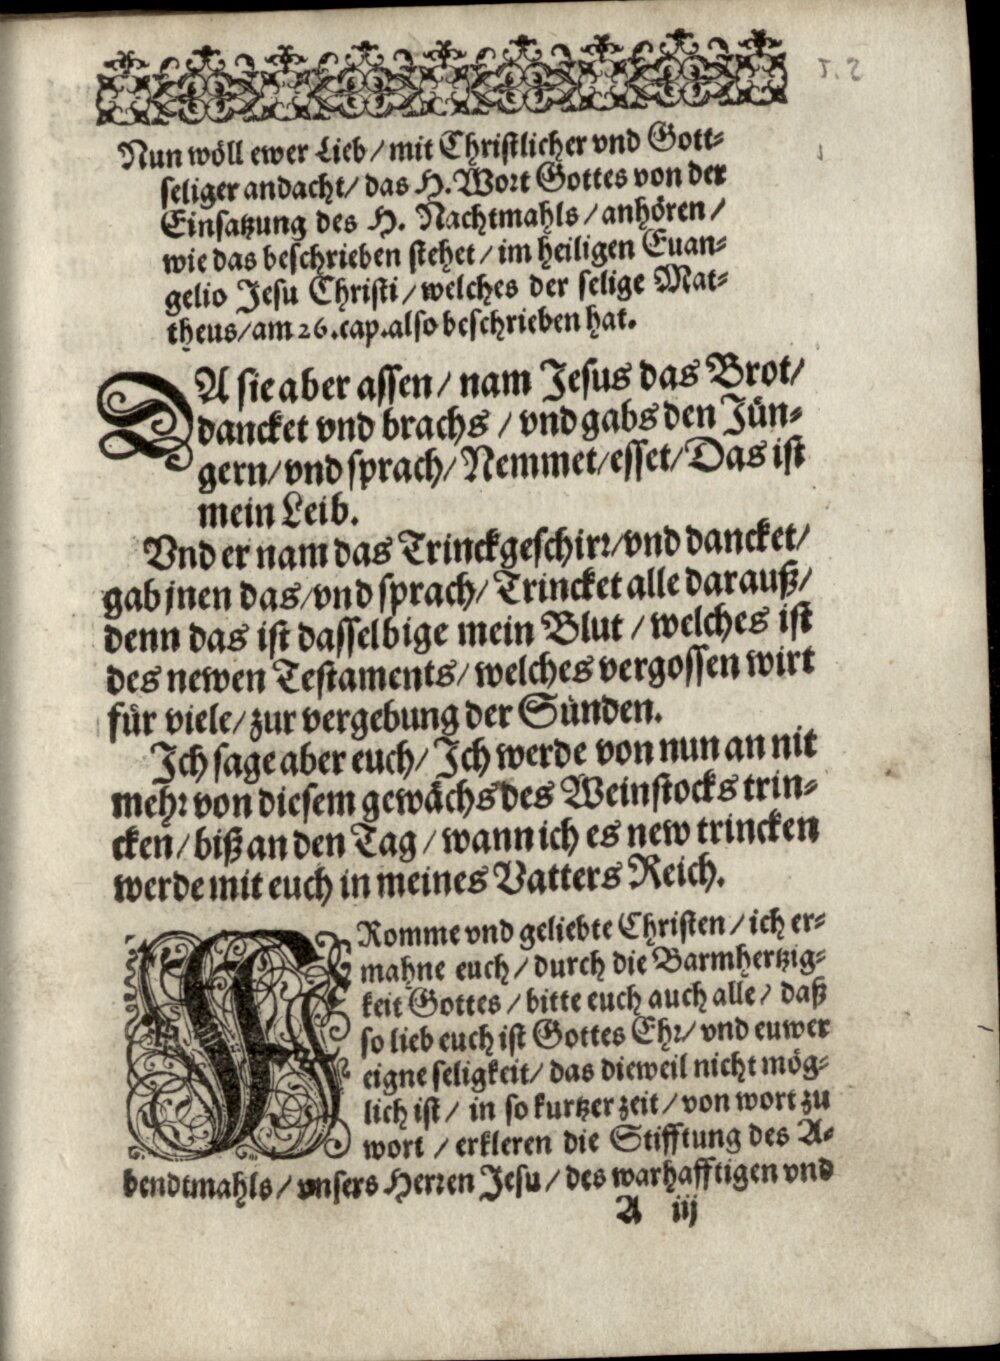 Nun wöll ewer Lieb / mit Christlicher vnd Gott-
seliger andacht / das H. Wort Gottes von der
Einsatzung des H. Nachtmahls / anhören /
wie das beschrieben stehet / im heiligen Euan-
gelio Jesu Christi / welches der selige Mat-
theus / am 26. cap. also beschrieben hat.
DA sie aber assen / nam Jesus das Brot /
dancket vnd brachs / vnd gabs den Jün-
gern / vnd sprach / Nemmet / esset / Das ist
mein Leib.
Vnd er nam das Trinckgeschirr / vnd dancket /
gab jnen das / vnd sprach / Trincket alle darauß /
denn das ist dasselbige mein Blut / welches ist
des newen Testaments / welches vergossen wirt
für viele / zur vergebung der Sünden.
Ich sage aber euch / Ich werde von nun an nit
mehr von diesem gewächs des Weinstocks trin-
cken / biß an den Tag / wann ich es new trincken
werde mit euch in meines Vatters Reich.
FRomme vnd geliebte Christen / ich er-
mahne euch / durch die Barmhertzig-
keit Gottes / bitte euch auch alle / daß
so lieb euch ist Gottes Ehr / vnd euwer
eigne seligkeit / das dieweil nicht mög-
lich ist / in so kurtzer zeit / von wort zu
wort / erkleren die Stifftung des A-
bendtmahls / vnsers Herren Jesu / des warhafftigen vnd
A iij